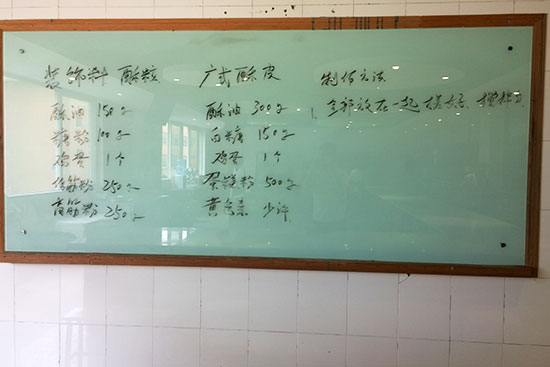 装饰料 酥粒
酥油 150g
糖粉 100g
鸡蛋 1个
低筋粉 250g
高筋粉 250g
广式酥皮
酥油 300g
白糖 150g
鸡蛋 1个
蛋糕粉 500g
黄色素 少许
制作方法
1. 全部放在一起 搅拌